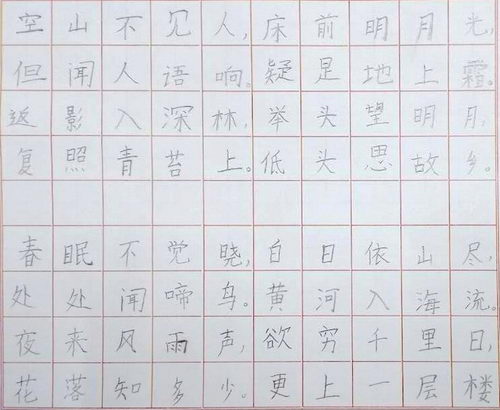 空山不见人，床前明月光，
但闻人语响。疑是地上霜。
返影入深林，举头望明月，
复照青苔上。低头思故乡。
春眠不觉晓，白日依山尽，
处处闻啼鸟。黄河入海流。
夜来风雨声，欲穷千里日，
花落知多少。更上一层楼